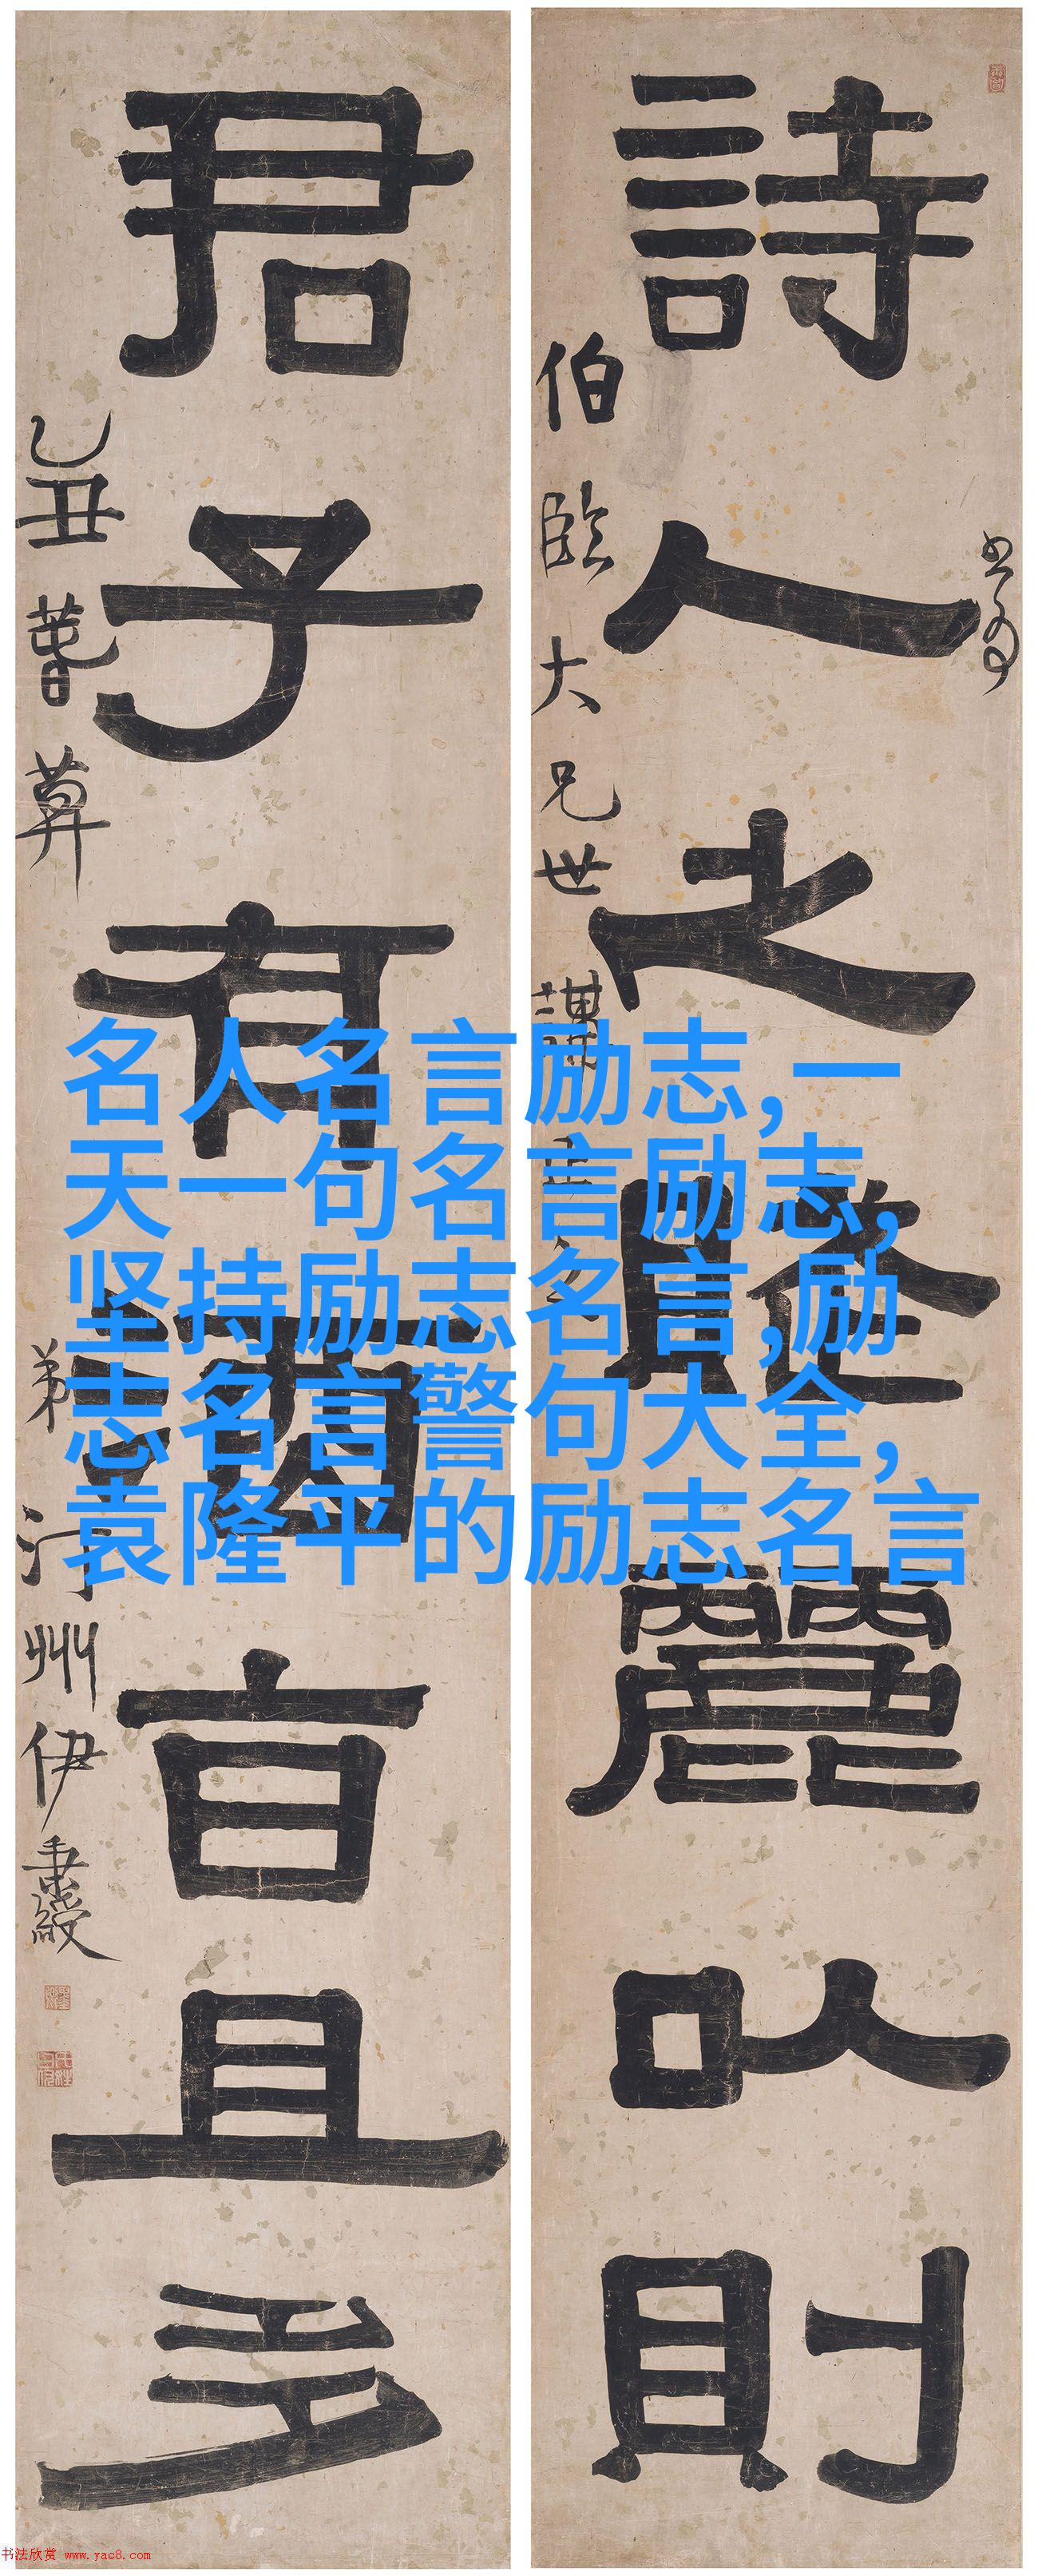 詩人之賦麗以則
伯臨大兄世講正之
君子有酒旨且多
乙丑
弟汀州伊秉綬
名人名言励志,一
天一句名言励志,
坚持励志名言,励
志名言警句大全,
袁隆平的励志名言
书法欣赏 www.yac8.com